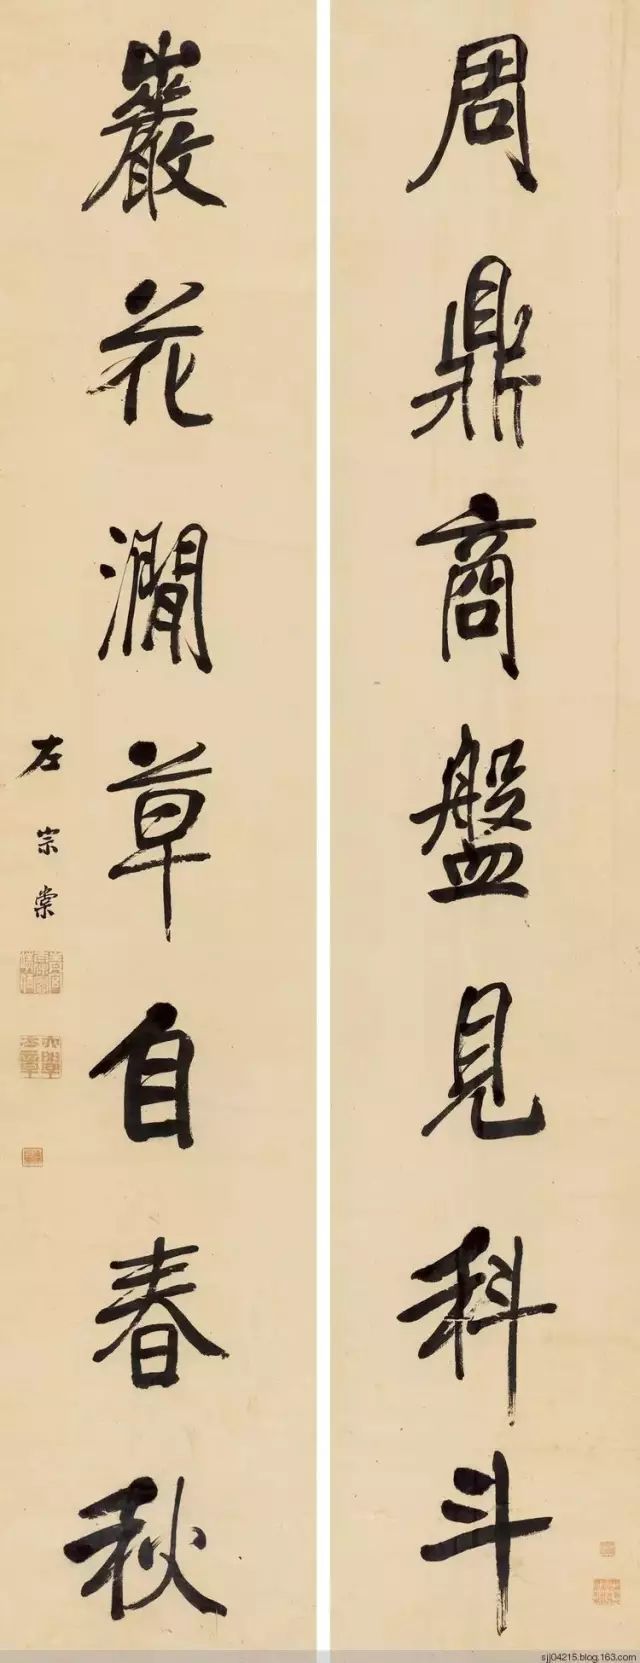 周鼎商盤見科斗
巖花澗草自春秋
左宗棠
sjj04215.blog.163.com